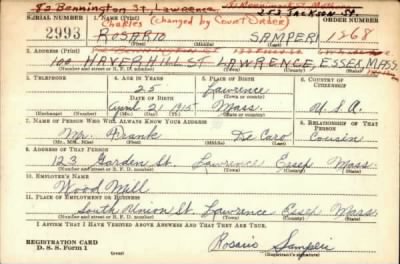 80 Bennington St, Lawrence
253 Jackson St.
SERIAL NUMBER 1. NAME (Print) Charles (changed by Court Order) ORDER NUMBER
2993 ROSARIO SAMPERI 1268
(First) (Middle) (Last)
2. ADDRESS (Print)
100 HAVERHILL ST LAWRENCE, ESSEX, MASS.
(Number and street or R. F. D. number) (Town) (County) (State)
3. TELEPHONE 4. AGE IN YEARS 5. PLACE OF BIRTH 6. COUNTRY OF CITIZENSHIP
25 Lawrence
DATE OF BIRTH (Town or county)
April 21 1915 Mass. U.S.A.
(Exchange) (No.) (Mo.) (Day) (Yr.) (State or country)
7. NAME OF PERSON WHO WILL ALWAYS KNOW YOUR ADDRESS 8. RELATIONSHIP OF THAT PERSON
Mr. Frank De Caro Cousin
(Mr., Mrs., Miss) (First) (Middle) (Last)
9. ADDRESS OF THAT PERSON
123 Garden St. Lawrence Essex Mass.
(Number and street or R. F. D. number) (Town) (County) (State)
10. EMPLOYER'S NAME
Wood Mill
11. PLACE OF EMPLOYMENT OR BUSINESS
South Union St. Lawrence Essex Mass.
(Number and street or R. F. D. number) (Town) (County) (State)
I AFFIRM THAT I HAVE VERIFIED ABOVE ANSWERS AND THAT THEY ARE TRUE.
REGISTRATION CARD
D. S. S. Form 1
Rosario Samperi
(Registrant's signature)